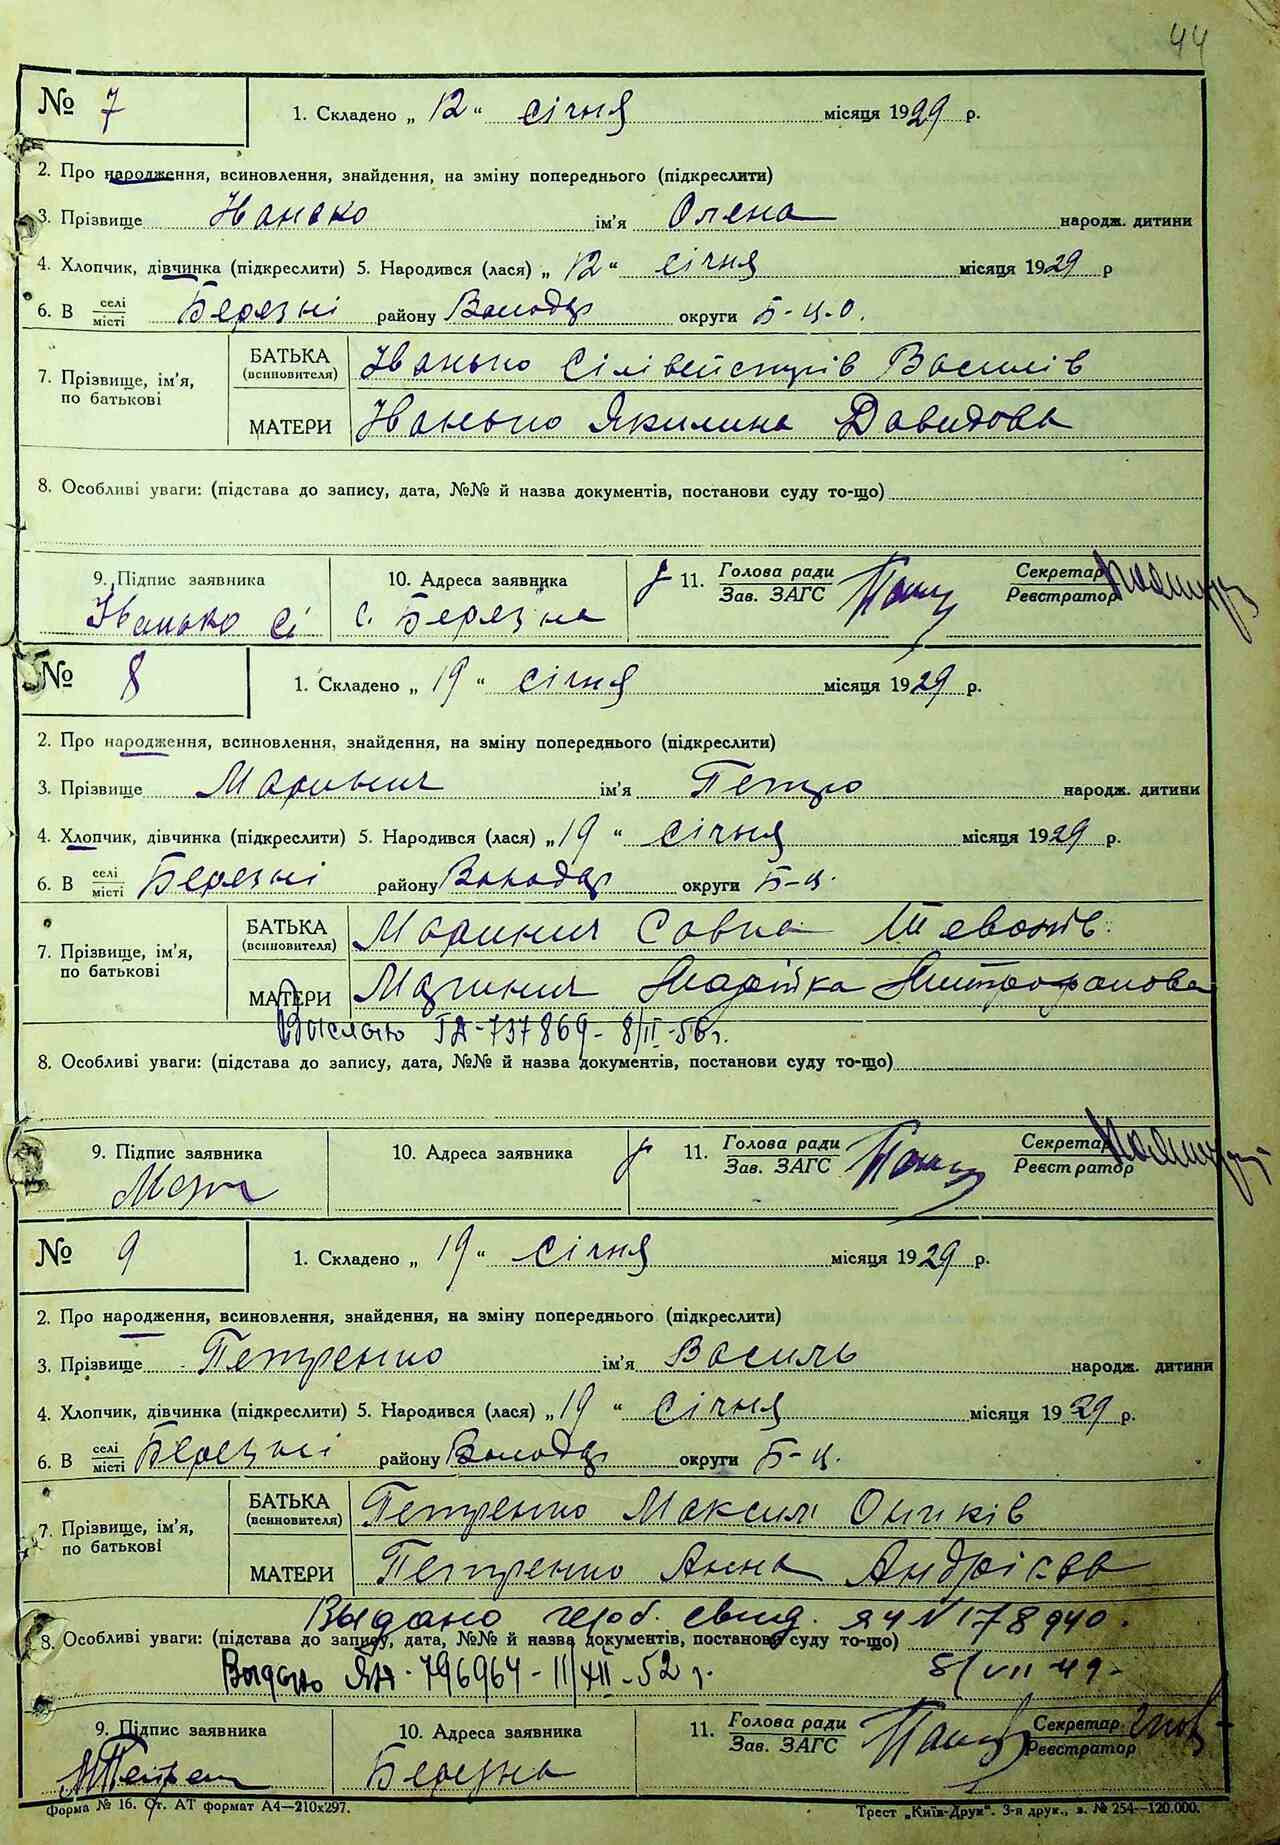 44
№ 7
1. Складено „ 12 “ січня місяця 1929 р.
2. Про народження, всиновлення, знайдення, на зміну попереднього (підкреслити)
3. Прізвище Іванько ім'я Олена народж. дитини
4. Хлопчик, дівчинка (підкреслити) 5. Народився (лася) „ 12 “ січня місяця 1929 р
6. В селі/місті Березні району Володар округи Б-Ц.О.
7. Прізвище, ім'я, по батькові
БАТЬКА (всиновителя) Іванько Сілівейстрів Василів
МАТЕРИ Іванько Якилина Давидова
8. Особливі уваги: (підстава до запису, дата, №№ й назва документів, постанови суду то-що)
9. Підпис заявника 10. Адреса заявника 11. Голова ради/Зав. ЗАГС Секретар/Реєстратор
Іванько Сі с. Березна
№ 8
1. Складено „ 19 “ січня місяця 1929 р.
2. Про народження, всиновлення, знайдення, на зміну попереднього (підкреслити)
3. Прізвище Маринич ім'я Петро народж. дитини
4. Хлопчик, дівчинка (підкреслити) 5. Народився (лася) „ 19 “ січня місяця 1929 р.
6. В селі/місті Березні району Володар округи Б-Ц.
7. Прізвище, ім'я, по батькові
БАТЬКА (всиновителя) Маринич Савка
МАТЕРИ Маринич Марійка Митрофанова
Выслано ГА-737869- 8/II-56г.
8. Особливі уваги: (підстава до запису, дата, №№ й назва документів, постанови суду то-що)
9. Підпис заявника 10. Адреса заявника 11. Голова ради/Зав. ЗАГС Секретар/Реєстратор
№ 9
1. Складено „ 19 “ січня місяця 1929 р.
2. Про народження, всиновлення, знайдення, на зміну попереднього (підкреслити)
3. Прізвище Петренко ім'я Василь народж. дитини
4. Хлопчик, дівчинка (підкреслити) 5. Народився (лася) „ 19 “ січня місяця 1929 р.
6. В селі/місті Березні району Володар округи Б-Ц.
7. Прізвище, ім'я, по батькові
БАТЬКА (всиновителя) Петренко Максим
МАТЕРИ Петренко Анна Андрієва
Выдано герб. свид. ЯЧ N 178940.
8. Особливі уваги: (підстава до запису, дата, №№ й назва документів, постанови суду то-що)
Выдано ЯЖ-796964-11/XII-52 г. 5/VII 49-
9. Підпис заявника 10. Адреса заявника 11. Голова ради/Зав. ЗАГС Секретар/Реєстратор
Березна
Форма № 16. Ст. АТ формат А4—210х297. Трест „Київ-Друк“. 3-я друк., з. № 254—120.000.